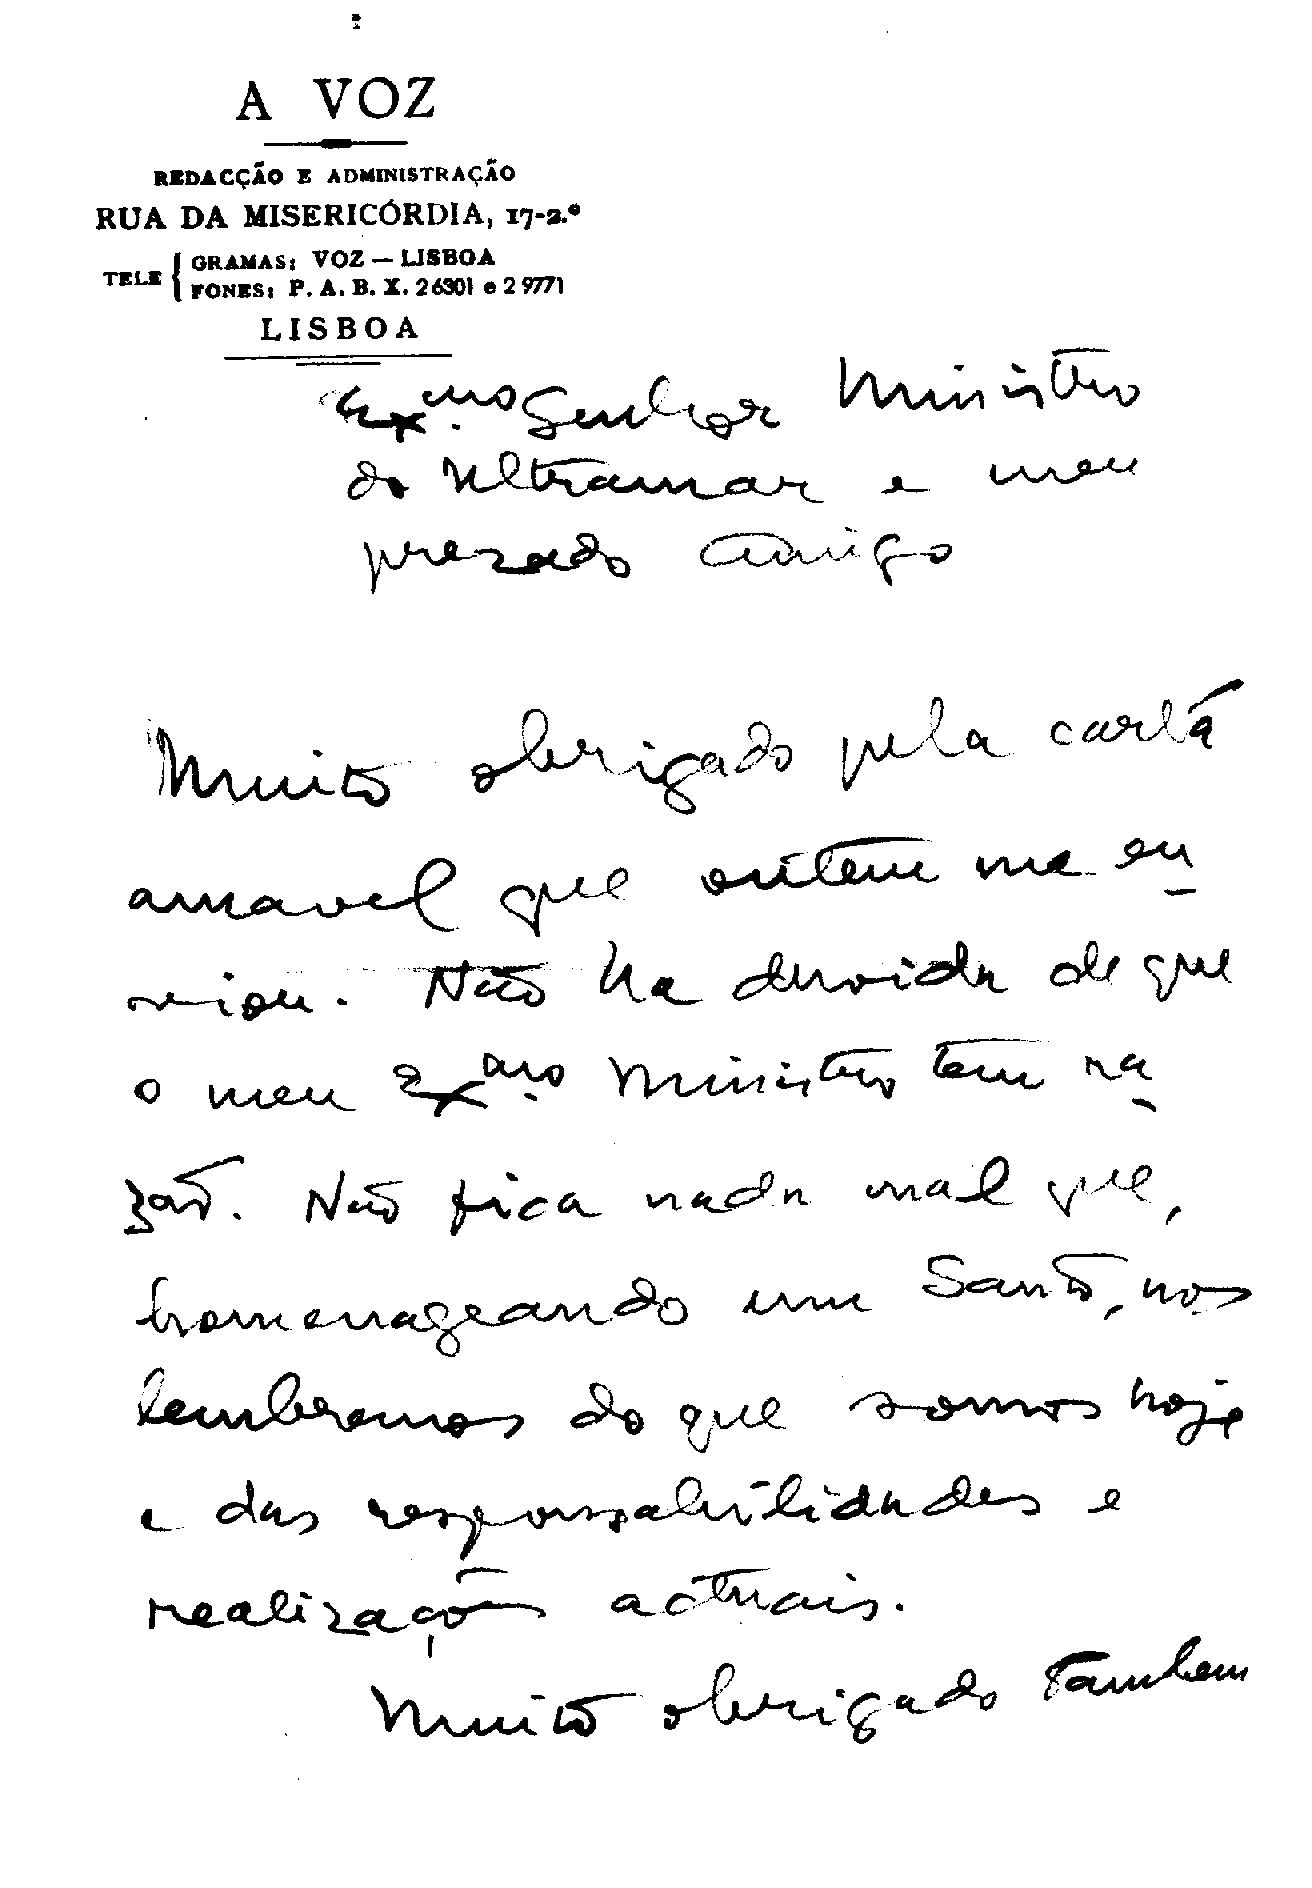 A VOZ
REDACÇÃO E ADMINISTRAÇÃO
RUA DA MISERICÓRDIA, 17-2.º
TELE { GRAMAS: VOZ — LISBOA
FONES: P. A. B. X. 26301 e 29771
LISBOA
Ex.mo Senhor Ministro
do Ultramar e meu
prezado amigo
Muito obrigado pela carta
amavel que ontem me en-
viou. Não ha duvida de que
o meu Ex.mo Ministro tem ra-
zão. Não fica nada mal que,
homenageando um Santo, nos
lembremos do que somos hoje
e das responsabilidades e
realizações actuais.
Muito obrigado tambem